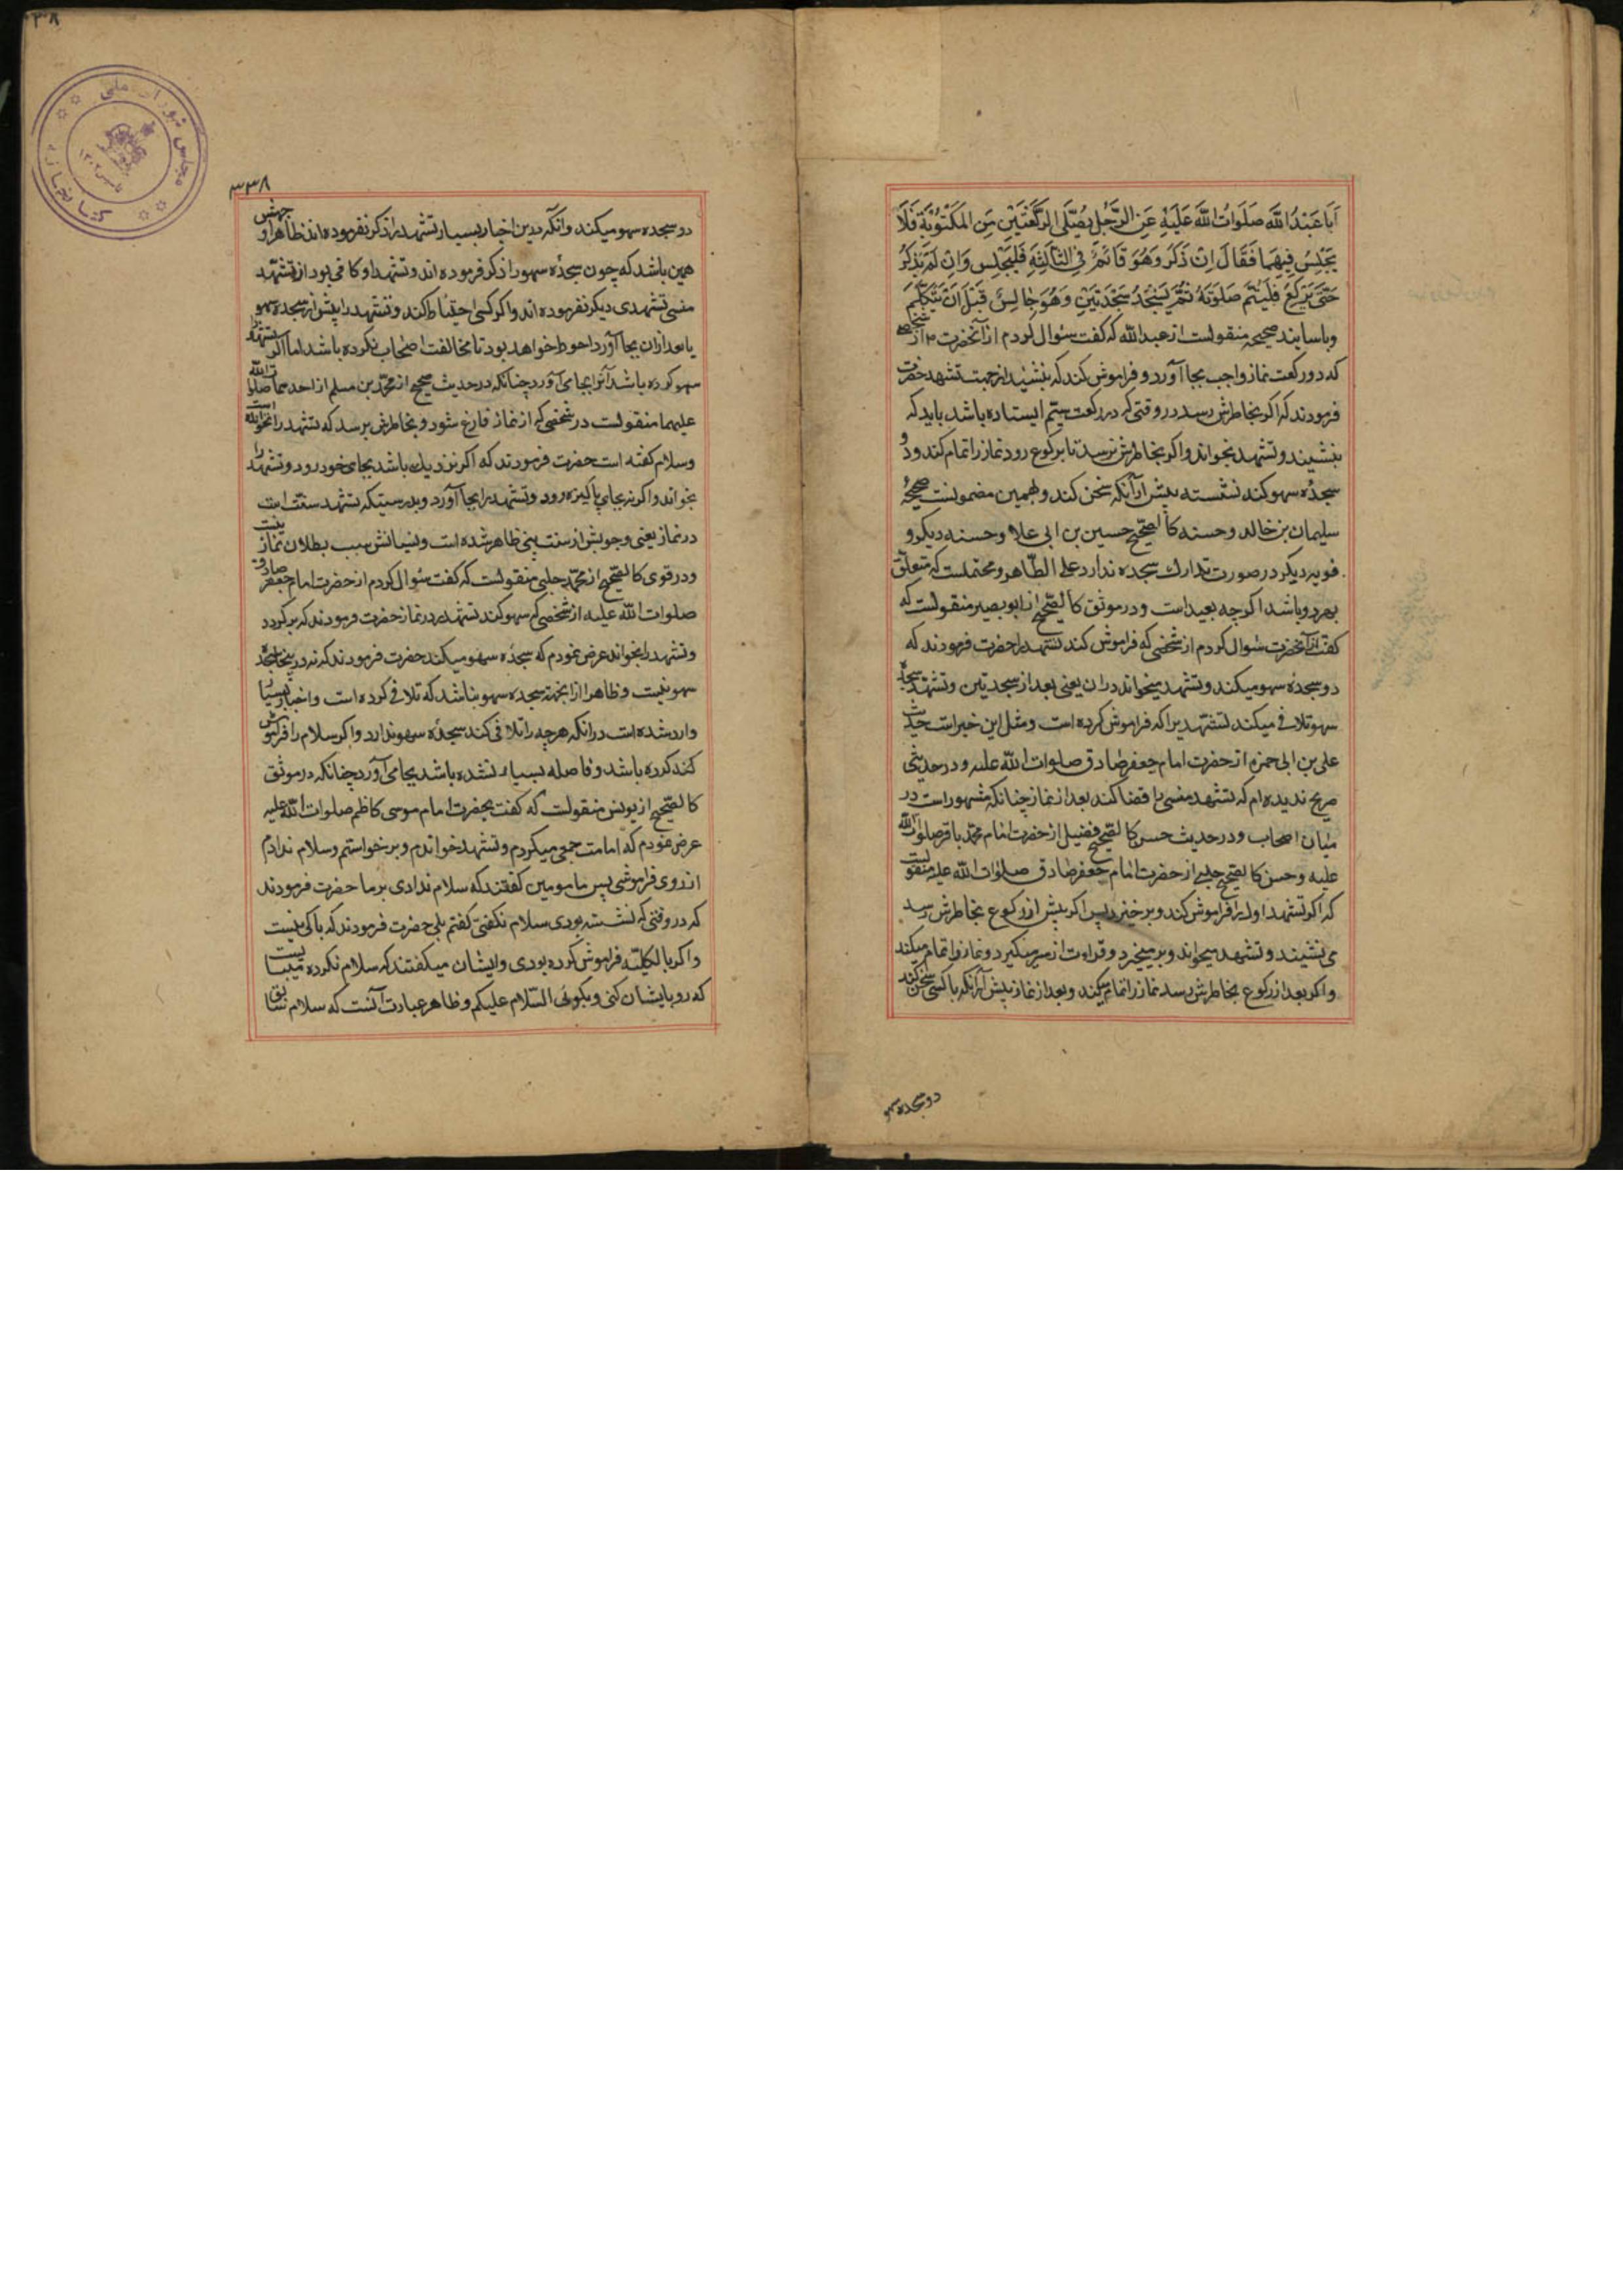 اَبَا عَبْدُاللَّه صَلَوَاتُ اللَّهَ عَلَيْهِ عَنِ الرَّجُلِ يُصَلِّى الرَّكْعَتَيْنِ مِنَ الْمَكْتُوبَةِ فَلَا
يَجْلِسُ فِيهِمَا فَقَالَ اِنْ ذَكَرَ وَهُوَ قَائمٌ فِى الثَّالِثَةِ فَلْيَجْلِس وَاِنْ لَمْ يَذْكُرْ
حَتَّى يَرْكَعَ فَلْيُتِمَّ صَلَوتَهُ ثُمَّ يَسْجُدُ سَجْدَتَيْنِ وَهُوَ جَالِسٌ قَبْلَ اَنْ يَتَكَلَّمَ
وباسانید صحیحه منقولست از عبدالله که کفت سئوال کردم از آنحضرت از شخصی
که دو رکعت نماز واجب بجا آورد و فراموش کند که بنشیند از جهت تشهد حضرت
فرمودند که اکر بخاطرش رسد در وقتی که در رکعت سیّم ایستاده باشد باید که
بنشیند و تشهد بخواند و اکر بخاطرش نرسد تا برکوع رود نماز را تمام کند و دو
سجدهٔ سهو کند نشسته پیش از آنکه سخن کند و بهمین مضمونست صحیحهٔ
سلیمان بن خالد و حسنه کالصّحیح حسین بن ابی علا و حسنه دیکر و
قویه دیکر در صورت تدارك سجده ندارد علی الظّاهر و محتملست که متعلّق
بهر دو باشد اکرچه بعید است و در موثق کالصّحیح از ابوبصیر منقولست که
کفت از آنحضرت سئوال کردم از شخصی که فراموش کند تشهد را حضرت فرمودند که
دو سجدهٔ سهو میکند و تشهد میخواند در ان یعنی بعد از سجدتین و تشهّد سجدهٔ
سهو تلافی میکند تشهّدیرا که فراموش کرده است و مثل این خبر است حدیث
علی بن ابی حمزه از حضرت امام جعفر صادق صلوات الله علیه و در حدیثی
صریح ندیده ام که تشهد منسی را قضا کند بعد از نماز چنانکه مشهور است در
میان اصحاب و در حدیث حسن کالصّحیح فضیل از حضرت امام محمّد باقر صلوات الله
علیه و حسن کالصّحیح حلبی از حضرت امام جعفر صادق صلوات الله علیه منقولست
که اکر تشهد اول را فراموش کند و برخیزد پس اکر پیش از رکوع بخاطرش رسد
می نشیند و تشهد میخواند و بر میخیزد و قراءت از سر میکیرد و نماز را تمام میکند
و اکر بعد از رکوع بخاطرش رسد نماز را تمام میکند و بعد از نماز پیش از آنکه با کسی سخن کند
دو سجده سهو
٣٣٨
دو سجده سهو میکند وانکه درین اخبار بسیار تشهد را ذکر نفرموده اند ظاهرا وجهش
همین باشد که چون سجدهٔ سهو را ذکر فرموده اند و تشهد او کافی بود از تشهّد
منسی تشهدی دیکر نفرموده اند و اکر کسی احتیاط کند و تشهد را پیش از سجده سهو
یا بعد از ان بجا آورد احوط خواهد بود تا مخالفت اصحاب نکرده باشد اما اکر تشهد را
سهو کرده باشد آنرا بجا می آورد چنانکه در حدیث صحیح از محمّد بن مسلم از احدهما صلوات الله
علیهما منقولست در شخصی که از نماز فارغ شود و بخاطرش برسد که تشهد را نخوانده است
وسلام کفته است حضرت فرمودند که اکر نزدیك باشد بجای خود رود و تشهد را
بخواند و اکر نه بجای پاکیزه رود و تشهد را بجا آورد و بدرستیکه تشهد سنّت است
در نماز یعنی وجوبش از سنت نبی ظاهر شده است و نسیانش سبب بطلان نماز نیست
و در قوی کالصّحیح از محمّد حلبی منقولست که کفت سئوال کردم از حضرت امام جعفر صادق
صلوات الله علیه از شخصی که سهو کند تشهد را در نماز حضرت فرمودند که بر کردد
و تشهد را بخواند عرض نمودم که سجدهٔ سهو میکند حضرت فرمودند که نه در اینجا سجدهٔ
سهو نیست و ظاهرا از اینجهة سجده سهو نباشد که تلافی کرده است و اخبار بسیار
وارد شده است در انکه هر چه را تلافی کند سجدهٔ سهو ندارد و اکر سلام را فراموش
کند کرده باشد و فاصله بسیار نشده باشد بجا می آورد چنانکه در موثق
کالصّحیح از یونس منقولست که کفت بحضرت امام موسی کاظم صلوات الله علیه
عرض نمودم که امامت جمعی میکردم و تشهد خواندم و برخواستم و سلام ندادم
از روی فراموشی پس مامومین کفتند که سلام ندادی بر ما حضرت فرمودند
که در وقتی که نشسته بودی سلام نکفتی کفتم بلی حضرت فرمودند که باکی نیست
و اکر بالکلیّه فراموش کرده بودی و ایشان میکفتند که سلام نکرده میبایست
که رو بایشان کنی و بکوئی السّلام علیکم و ظاهر عبادت آنست که سلام سابق